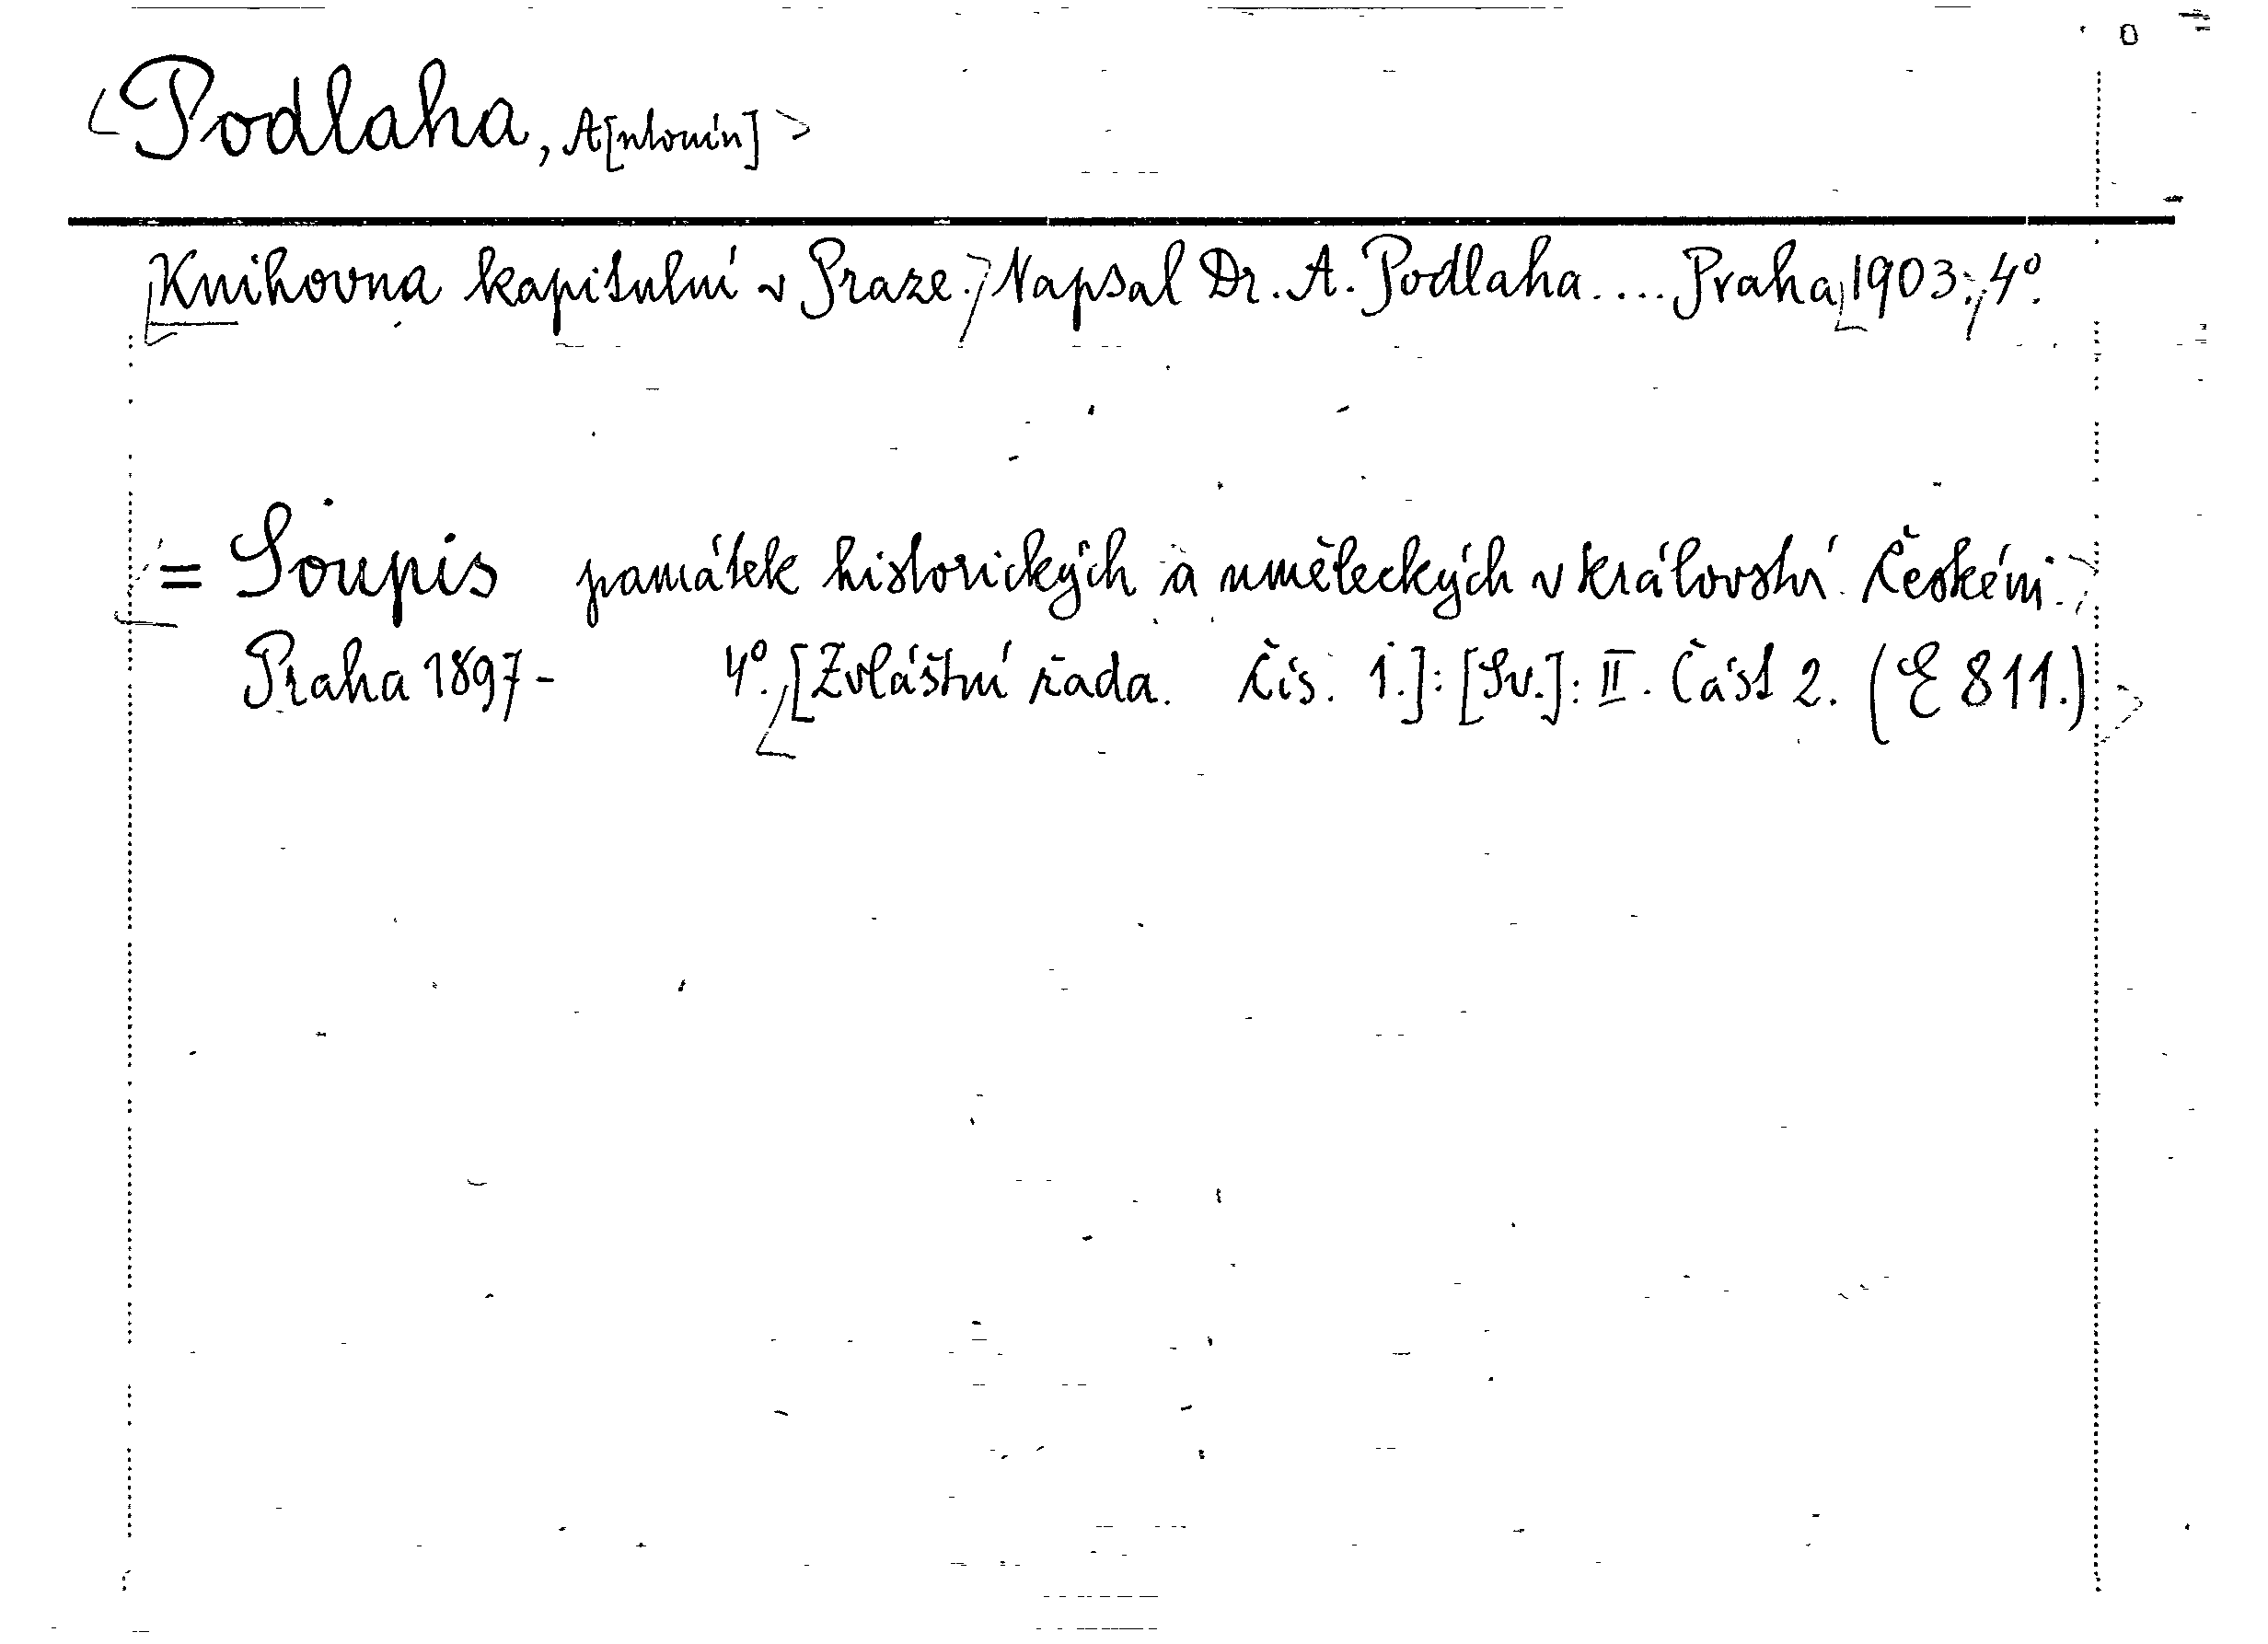 <Podlaha, A[ntonín]>
Knihovna kapitulní v Praze. Napsal Dr. A. Podlaha.... Praha 1903. 4°.
= Soupis památek historických a uměleckých v království Českém.
Praha 1897- 4°. [Zvláštní řada. Čís. 1.]: [Sv.]: II. Část 2. (E 811.)